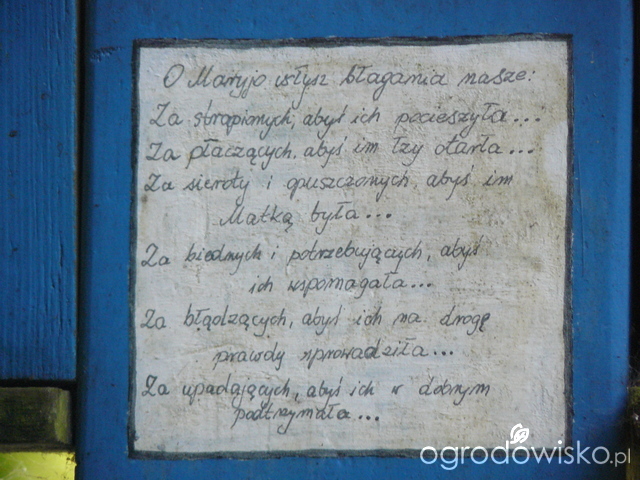 O Maryjo usłysz błagania nasze:
Za strapionych, abyś ich pocieszyła...
Za płaczących, abyś im łzy otarła...
Za sieroty i opuszczonych, abyś im
Matką była...
Za biednych i potrzebujących, abyś
ich wspomagała...
Za błądzących, abyś ich na drogę
prawdy sprowadziła...
Za upadających, abyś ich w dobrym
podtrzymała...
ogrodowisko.pl